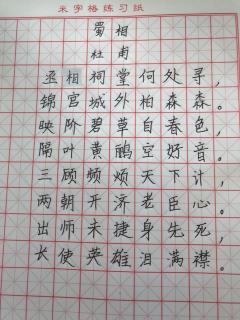 米字格练习纸
蜀相
杜甫
丞相祠堂何处寻，
锦宫城外柏森森。
映阶碧草自春色，
隔叶黄鹂空好音。
三顾频烦天下计，
两朝开济老臣心。
出师未捷身先死，
长使英雄泪满襟。